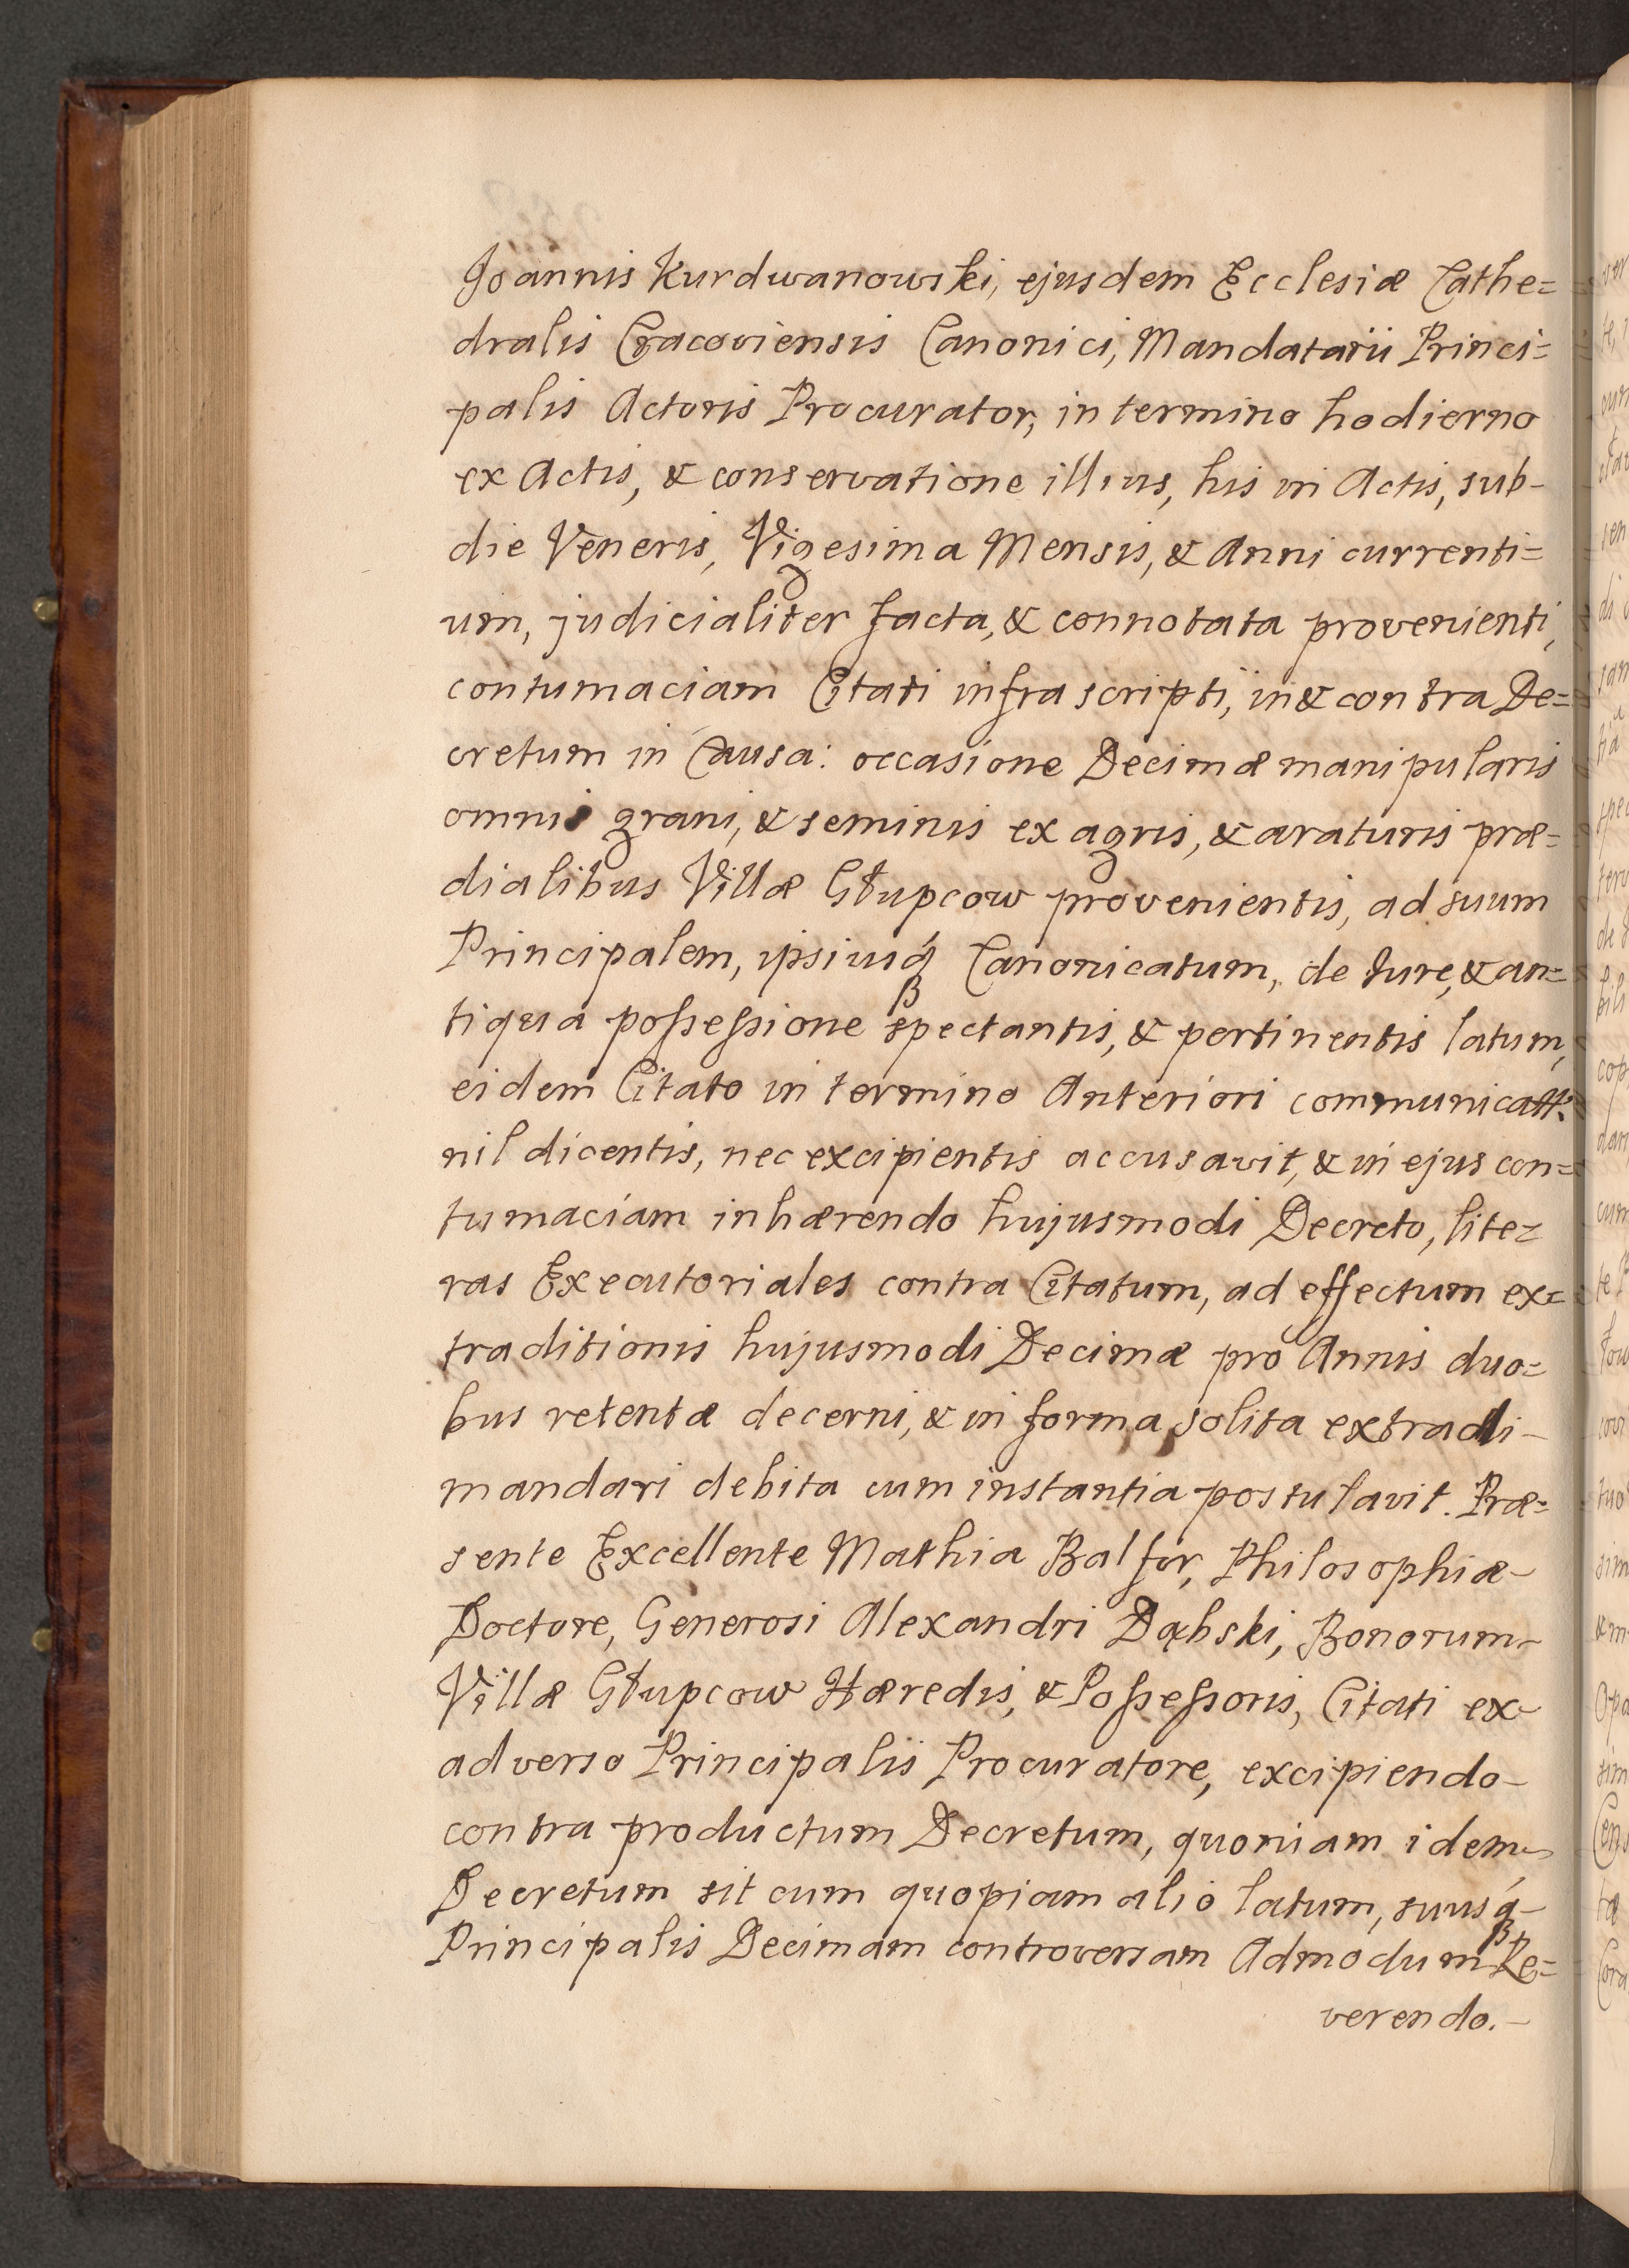 Joannis Kurdwanowski, ejusdem Ecclesiæ Cathe=
dralis Cracoviensis Canonici, Mandatarii Princi=
palis Actoris Procurator, in termino hodierno
ex Actis, & conservatione illius, his in Actis, sub-
die Veneris, Vigesima Mensis, & Anni currenti=
um, judicialiter facta, & connotata provenienti,
contumaciam Citati infrascripti, in & contra De=
cretum in Causa: occasione Decimæ manipularis
omnis grani, & seminis ex agris, & araturis præ=
dialibus Villæ Głupcow provenientis, ad suum
Principalem, ipsiusq́ꝫ Canonicatum, de Jure, & an=
tiqua poſseſsione spectantis, & pertinentis latum,
eidem Citato in termino Anteriori communicatt:
nil dicentis, nec excipientis accusavit, & in ejus con=
tumaciam inhærendo hujusmodi Decreto, lite=
ras Executoriales contra Citatum, ad effectum ex=
traditionis hujusmodi Decimæ pro Annis duo=
bus retentæ decerni, & in forma solita extradi-
mandari debita cum instantia postulavit. Præ=
sente Excellente Mathia Balfor, Philosophiæ-
Doctore, Generosi Alexandri Dąbski, Bonorum-
Villæ Głupcow Hæredis, & Poſseſsoris, Citati ex-
adverso Principalis Procuratore, excipiendo-
contra productum Decretum, quoniam idem-
Decretum sit cum quopiam alio latum, suusq́ꝫ-
Principalis Decimam controversam Admodum Re=
verendo.-